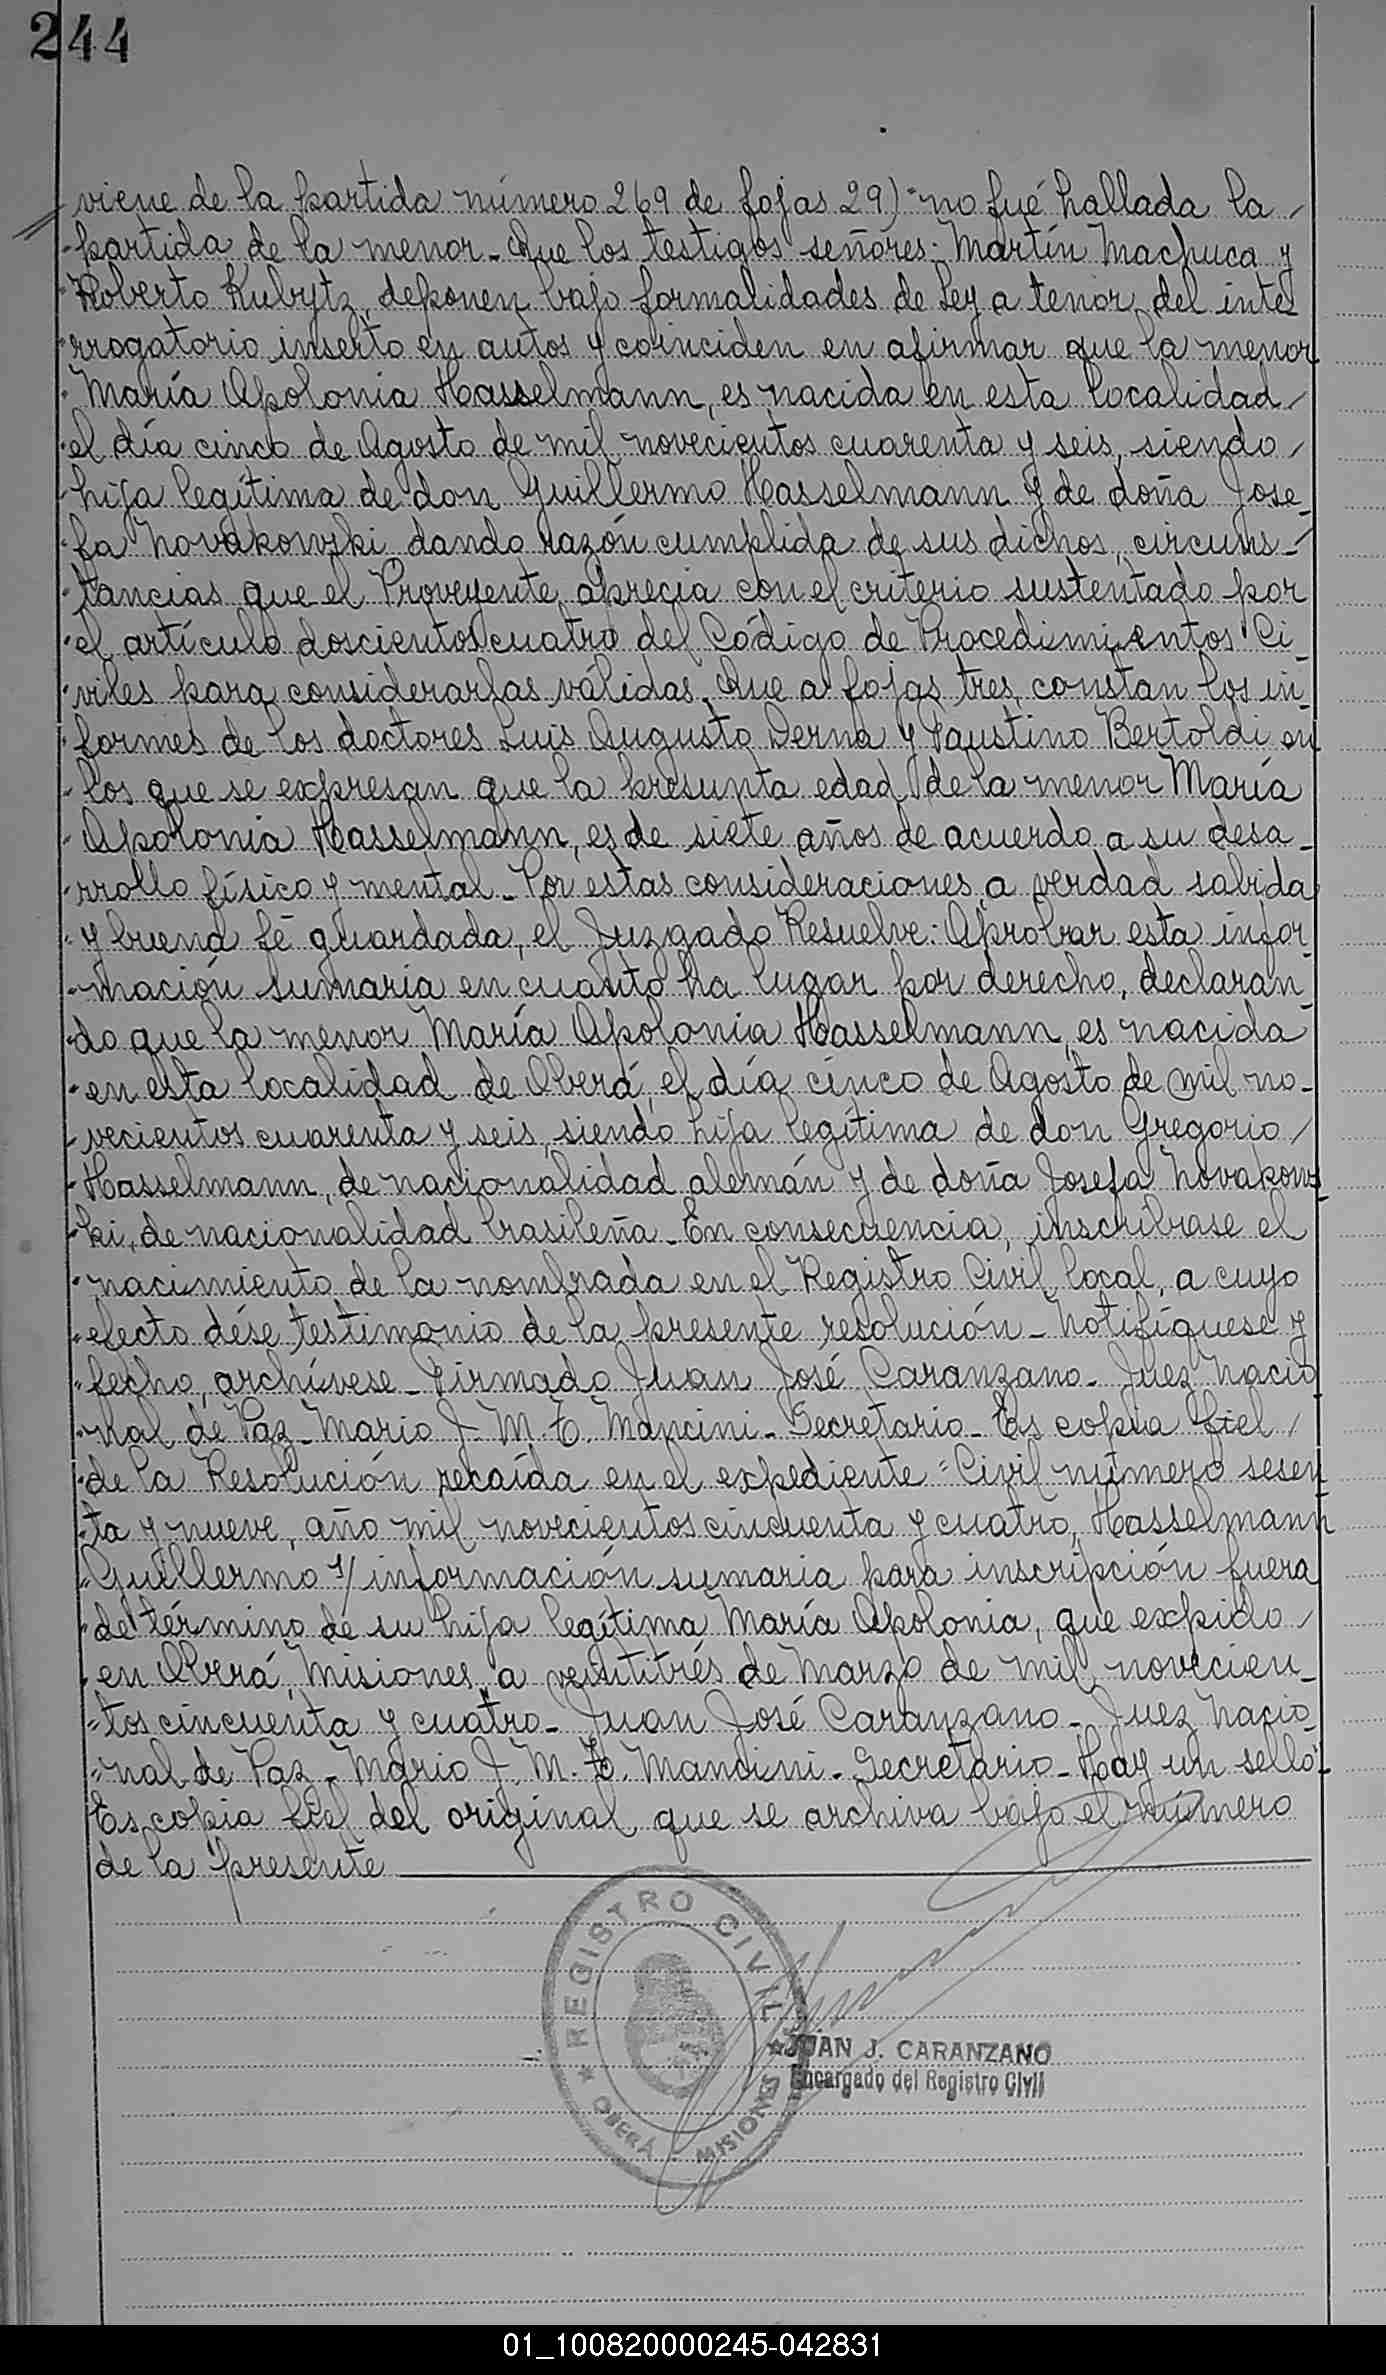 244
viene de la partida número 269 de fojas 29) "no fué hallada la /
"partida de la menor_ Que los testigos señores: Martín Machuca y
"Roberto Kubytz, deponen bajo formalidades de Ley a tenor del inte
"rrogatorio inserto en autos y coinciden en afirmar que la menor
"María Apolonia Hasselmann, es nacida en esta localidad /
"el día cinco de Agosto de mil novecientos cuarenta y seis, siendo /
"hija legítima de don Guillermo Hasselmann y de doña Jose_
"fa Novakowski dando razón cumplida de sus dichos, circuns_
"tancias que el Proveyente aprecia con el criterio sustentado por
"el artículo doscientos cuatro del Código de Procedimientos Ci_
"viles para considerarlas válidas. Que a fojas tres, constan los in_
"formes de los doctores Luis Augusto Derna y Faustino Bertoldi en
"los que se expresan que la presunta edad de la menor María
"Apolonia Hasselmann, es de siete años de acuerdo a su desa_
"rrollo físico y mental_ Por estas consideraciones, a verdad sabida
"y buena fé guardada, el Juzgado Resuelve: Aprobar esta infor
"mación sumaria en cuanto ha lugar por derecho, declaran_
"do que la menor María Apolonia Hasselmann, es nacida
"en esta localidad de Oberá, el día cinco de Agosto de mil no_
"vecientos cuarenta y seis, siendo hija legítima de don Gregorio /
"Hasselmann, de nacionalidad alemán y de doña Josefa Novakows
"ki, de nacionalidad brasileña_ En consecuencia, inscríbrase el
"nacimiento de la nombrada en el Registro Civil local, a cuyo
"efecto dése testimonio de la presente resolución_ Notifíquese y
"fecho, archívese_ Firmado Juan José Caranzano_ Juez Nacio
"nal de Paz_ Mario J. M. E. Mancini_ Secretario_ Es copia fiel /
"de la Resolución recaída en el expediente "Civil número sesen
"ta y nueve, año mil novecientos cincuenta y cuatro, Hasselmann
"Guillermo s/ información sumaria para inscripción fuera
"de término de su hija legítima María Apolonia, que expido /
"en Oberá, Misiones, a veintitrés de Marzo de mil novecien_
"tos cincuenta y cuatro_ Juan José Caranzano_ Juez Nacio_
"nal de Paz_ Mario J. M. E. Mancini_ Secretario_ Hay un sello"_
Es copia fiel del original que se archiva bajo el número
de la presente
REGISTRO CIVIL
OBERÁ - MISIONES
JUAN J. CARANZANO
Encargado del Registro Civil
01_100820000245-042831